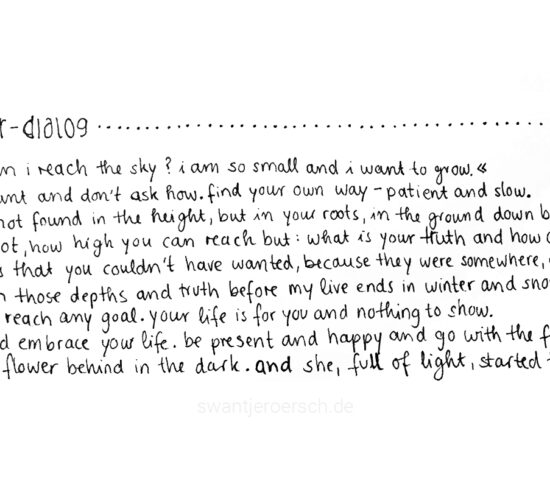 r-dialog
n i reach the sky? i am so small and i want to grow.«
unt and don't ask how. find your own way – patient and slow.
not found in the height, but in your roots, in the ground down b
ot, how high you can reach but: what is your truth and how
s that you couldn't have wanted, because they were somewhere,
n those depths and truth before my live ends in winter and sno
reach any goal. your life is for you and nothing to show.
d embrace your life. be present and happy and go with the f
flower behind in the dark. and she, full of light, started
swantjeroersch.de